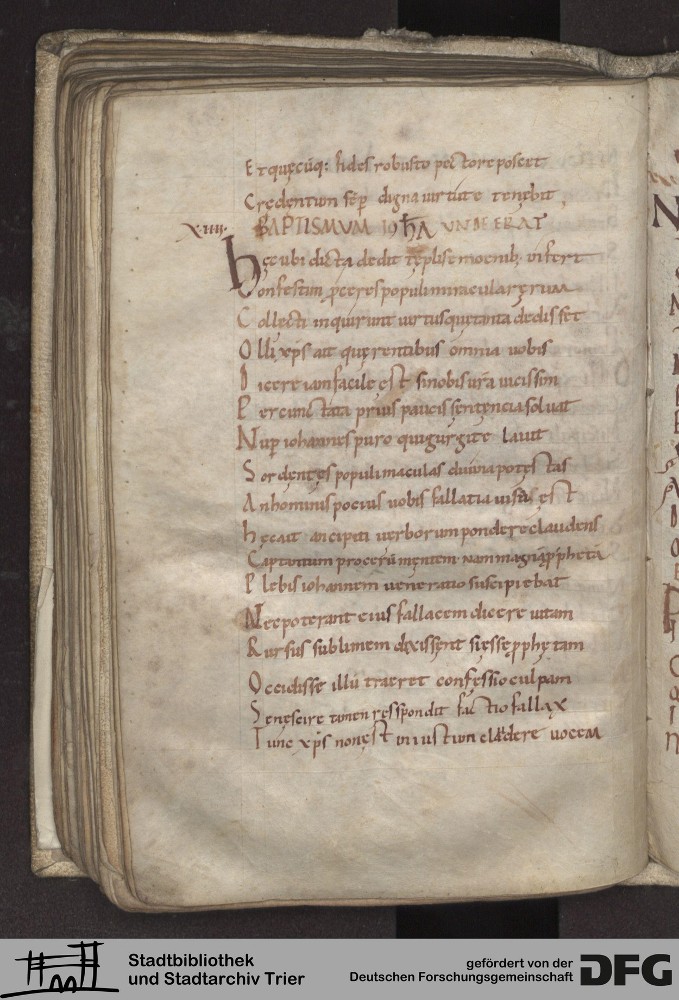 Et quęcūq: fides robusto pectore poscet
Credentum sēp̄ digna uirtute tenebit,
X·IIII· BAPTISMVM IOħA UNDE ERAT
hęc ubi dicta dedit tēplis emoenib; vifert
Confestim p̄ceres populi miracula rerum
Collecti inquirunt uirtus quę tanta dedisset
Olli xp̄s ait quęrentibus omnia uobis
Dicere iam facile est si nobis ur̄a uicissim
Percunctata prius paucis sentencia soluat
Nup̄ iohannis puro qui gurgite lauit
Sordentes populi maculas diuina potestas
An hominis pocius uobis fallatia uisa est
hęc ait ancipiti uerborum pondere claudens
Captantum procerū mentem nam magnā p̄pheta
Plebis iohannem ueneratio suscipiebat
Nec poterant eius fallacem dicere uitam
Rursus sublimem dixissent si esse p̄phetam
Occidisse illū traeret confessio culpam
Se nescire tamen respondit factio fallax
Tunc xp̄s non est iniustum cludere uocem
Stadtbibliothek
und Stadtarchiv Trier
gefördert von der
Deutschen Forschungsgemeinschaft
DFG